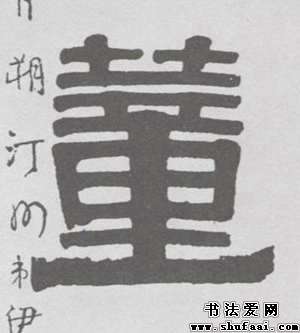 董
朔汀州伊
书法爱网
www.shufaai.com